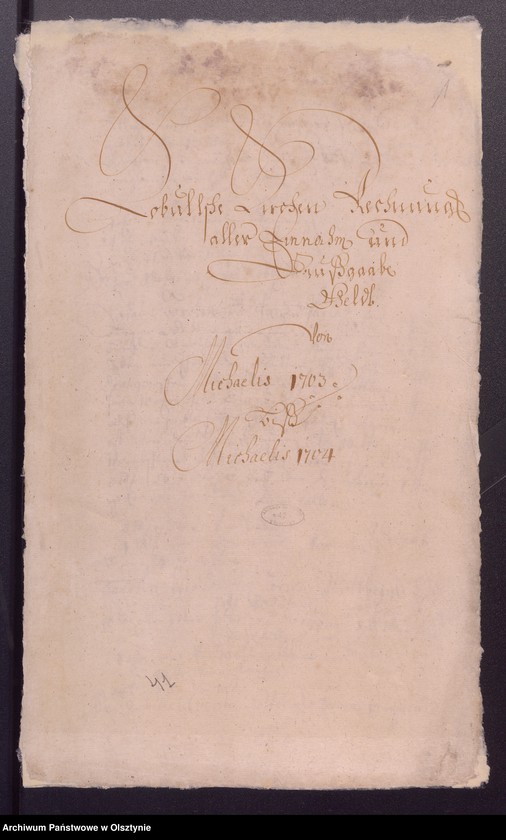 Kirchen Rechnung
aller Einnahm und
Außgaabe
Geldt.
Von
Michaelis 1703.
Biß
Michaelis 1704
41
Archiwum Państwowe w Olsztynie